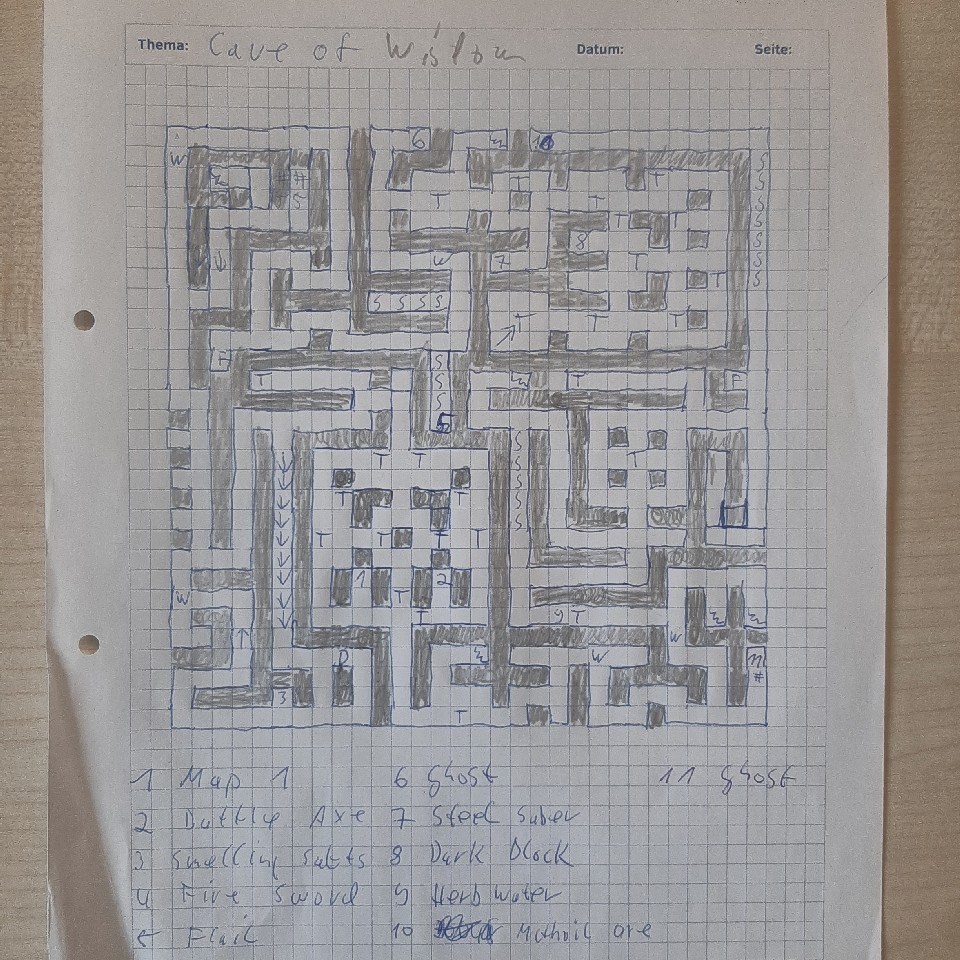 Thema: Cave of Wisdom Datum: Seite:
6 10
W S
# S
T T T S
5 S
T T T S
8 S
W 7 T S
T S
S S S S
T T T
F S
T S T F
S
S
T T T S
S
T T S
T T T S
1 2
W T
T 9 T
W
P W 11
#
3
T
1 Map 1 6 Ghost 11 Ghost
2 Battle Axe 7 Steel Saber
3 Smelling Salts 8 Dark Block
4 Fire Sword 9 Herb Water
5 Flail 10 Mithril ore